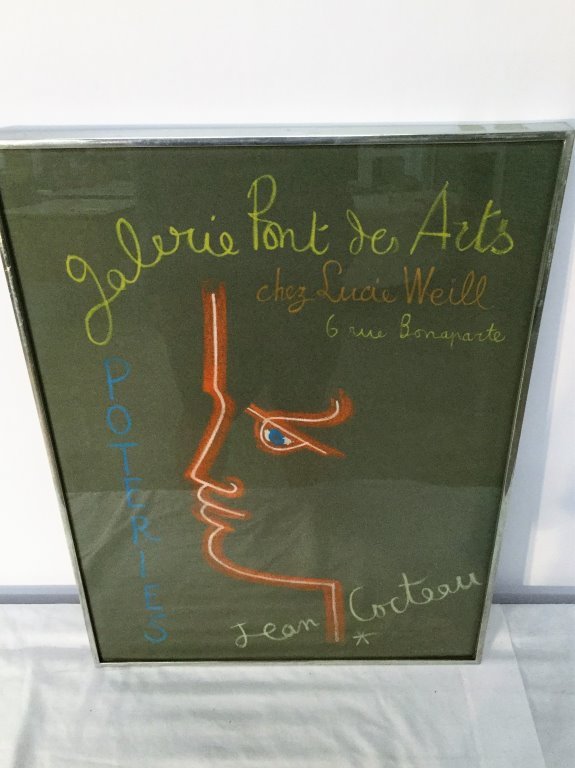 galerie Pont des Arts
chez Lucie Weill
6 rue Bonaparte
POTERIES
Jean Cocteau